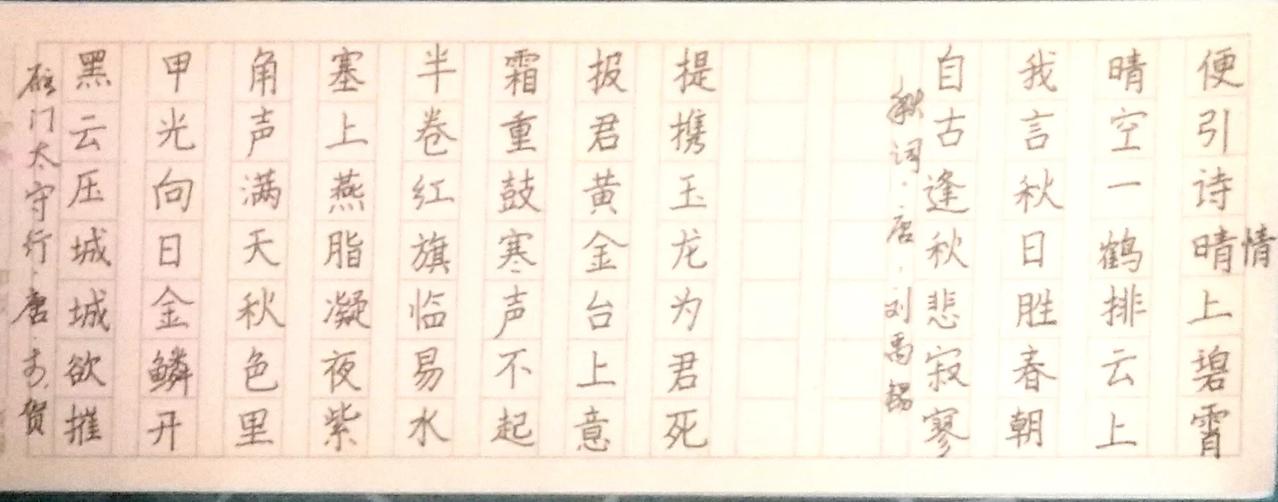 雁门太守行·唐·李贺
黑云压城城欲摧
甲光向日金鳞开
角声满天秋色里
塞上燕脂凝夜紫
半卷红旗临易水
霜重鼓寒声不起
报君黄金台上意
提携玉龙为君死
秋词·唐·刘禹锡
自古逢秋悲寂寥
我言秋日胜春朝
晴空一鹤排云上
便引诗晴上碧霄
情